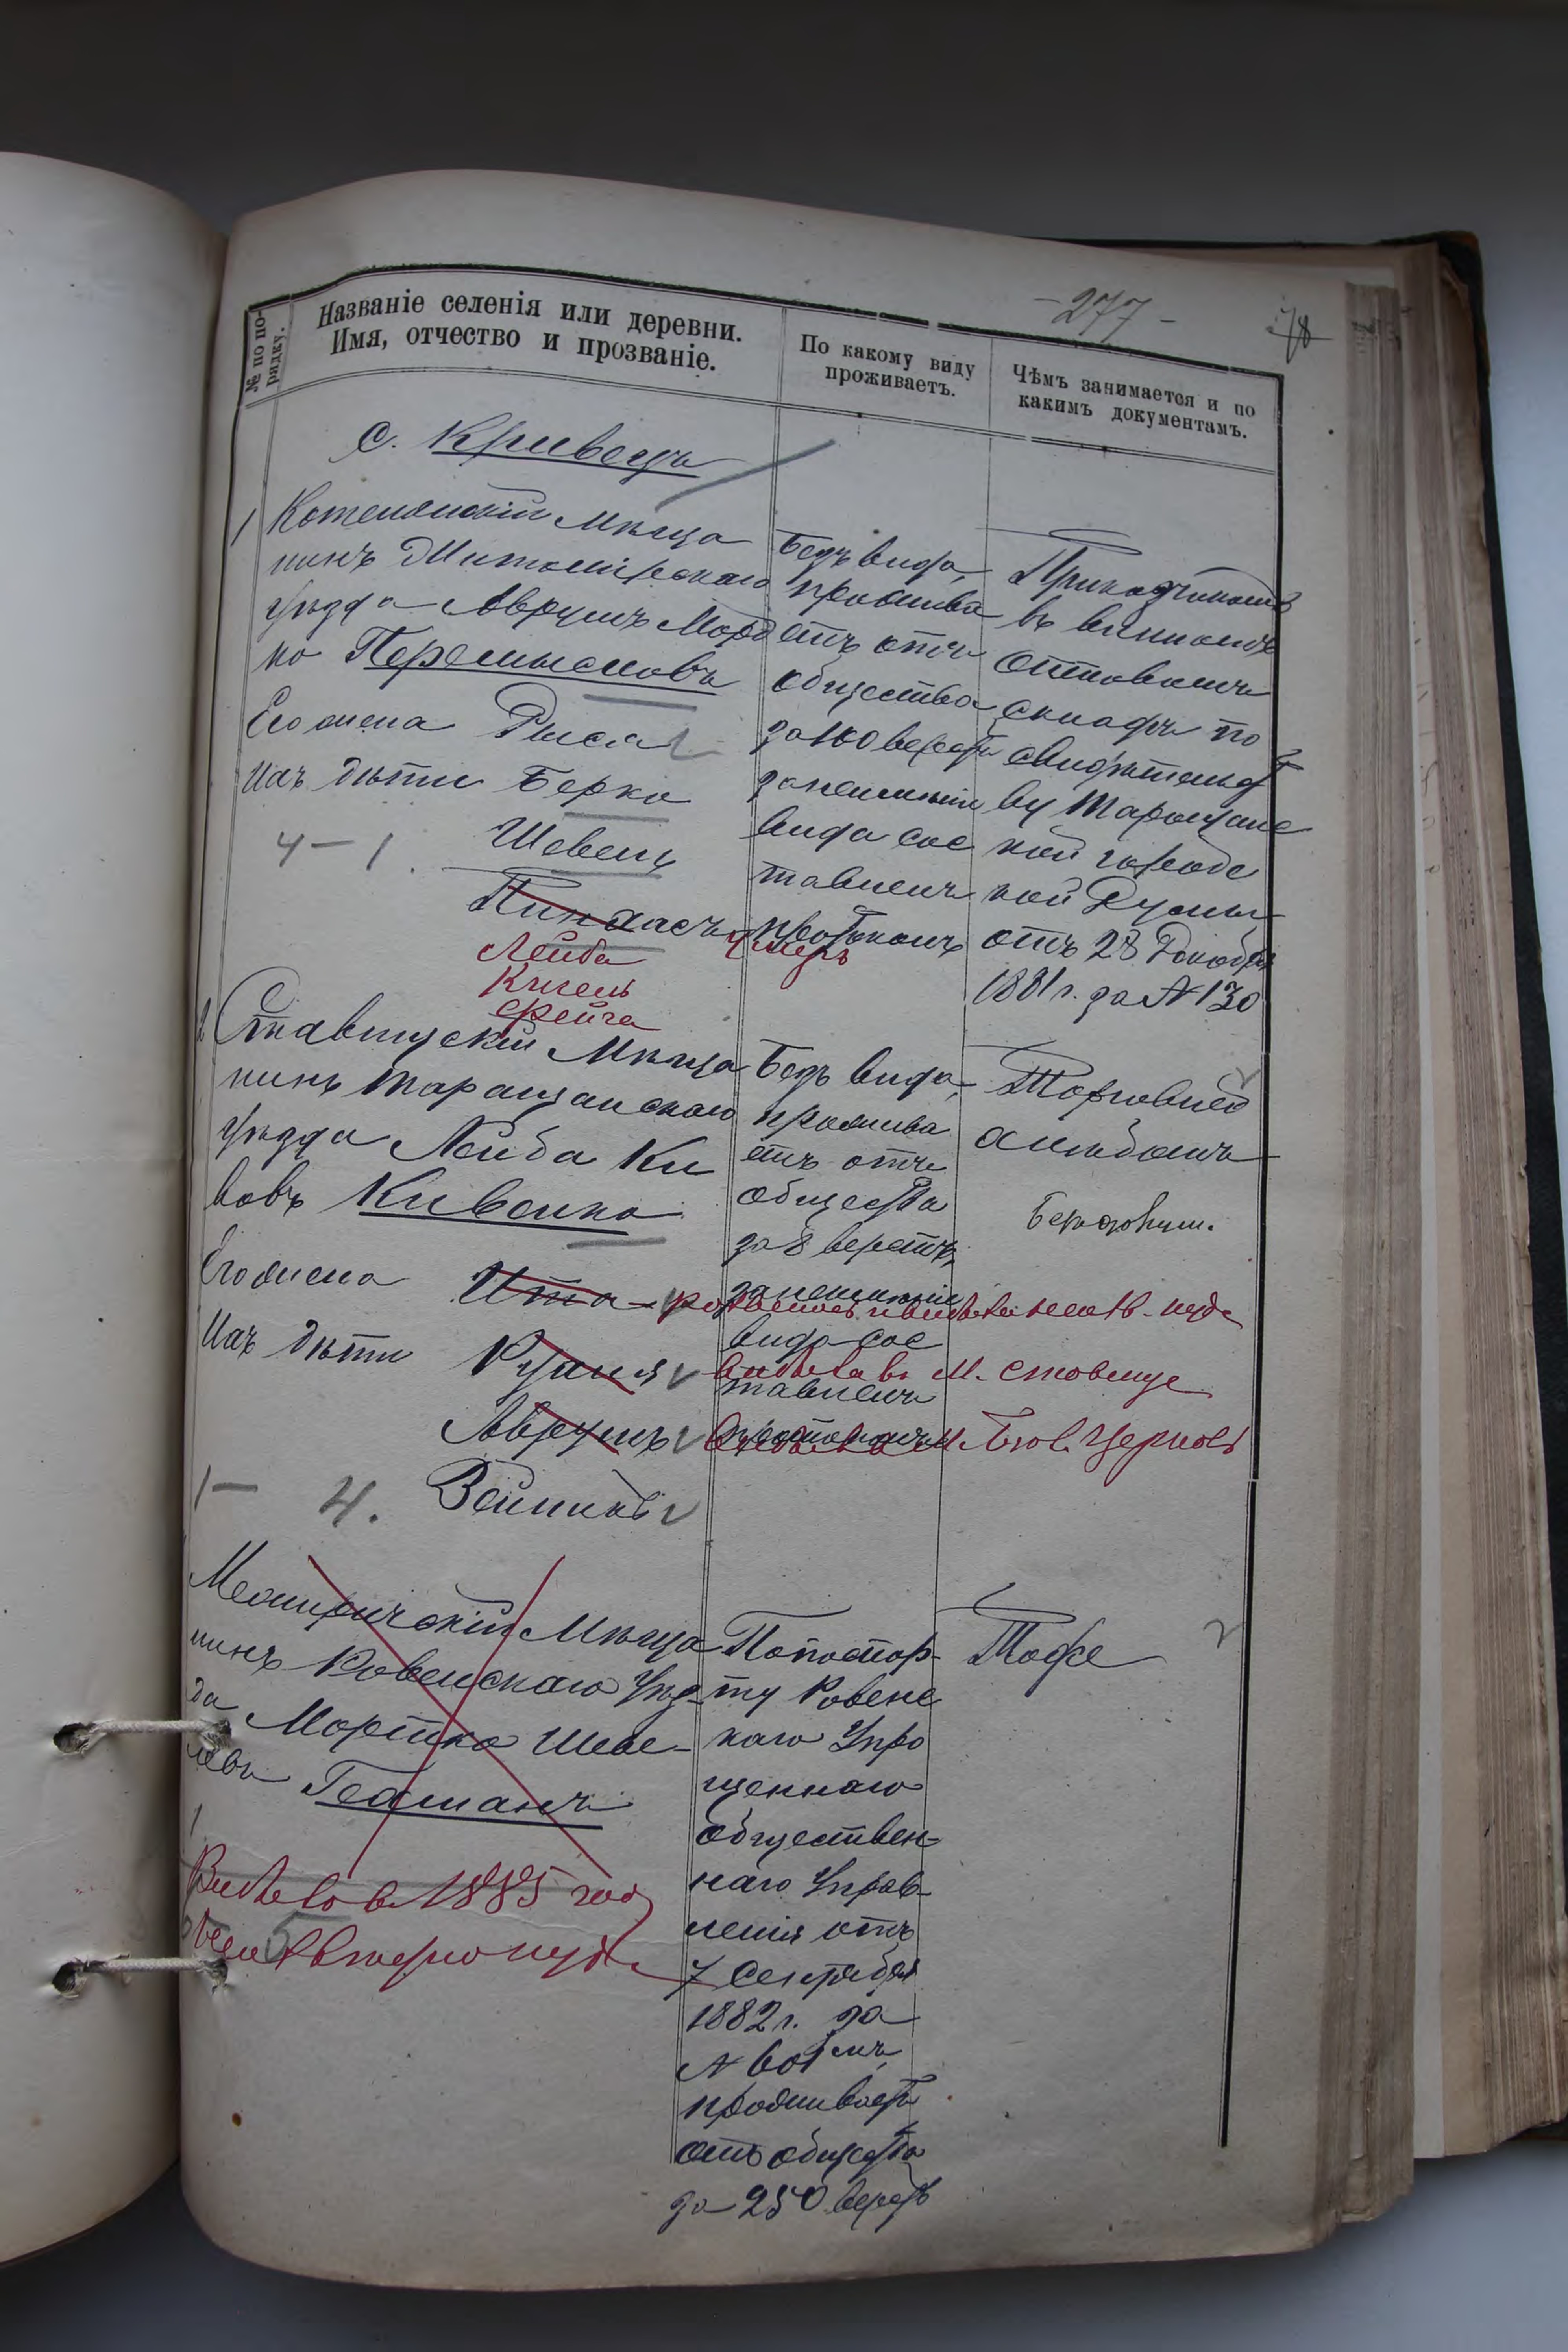 -277-
78
№ по по-
рядку.
Названіе селенія или деревни.
Имя, отчество и прозваніе.
По какому виду
проживаетъ.
Чѣмъ занимается и по
какимъ документамъ.
с. Кривецъ
1
Котелянскій Мѣща
нинъ Житомірскаго
уѣзда Аврумъ Мордко
Перемысловъ
Его жена Рыся
Ихъ дѣти Берко
4-1.
Шевель
Пинхасъ умеръ
Лейба
Кисель
Фейга
Безъ вида,
прожива
етъ отъ
общества
за 180 верстъ
за неимѣніе
вида сос
тавленъ
протоколъ
въ винномъ
оптовомъ
складѣ по
свидѣтельст
ву Таращанс
кой городс
кой Думы
отъ 28 Декабря
1881 г. за № 130
2
Ставищскій Мѣща
нинъ Таращанскаго
уѣзда Лейба Ки
вовъ Кивенко
Его жена Ита
Ихъ дѣти
Аврумъ
выбыла въ М. Ставище
М. Бѣл. Церковь
1- 4.
Безъ вида,
прожива
етъ отъ
общества
за 8 верстъ,
за неимѣніе
вида сос
тавленъ
протоколъ
Торговлею
хлѣбомъ
Межиричскій Мѣща
нинъ Ровенскаго Уѣз-
да Мортко Шеве-
левъ Гехманъ
1
Выбылъ въ 1885 году
5
По паспор-
ту Ровенс
каго Упро
щеннаго
обществен-
наго Управ-
ленія отъ
7 Сентября
1882 г. за
№ 601мъ,
проживаетъ
отъ общества
за 250 верстъ
Тоже